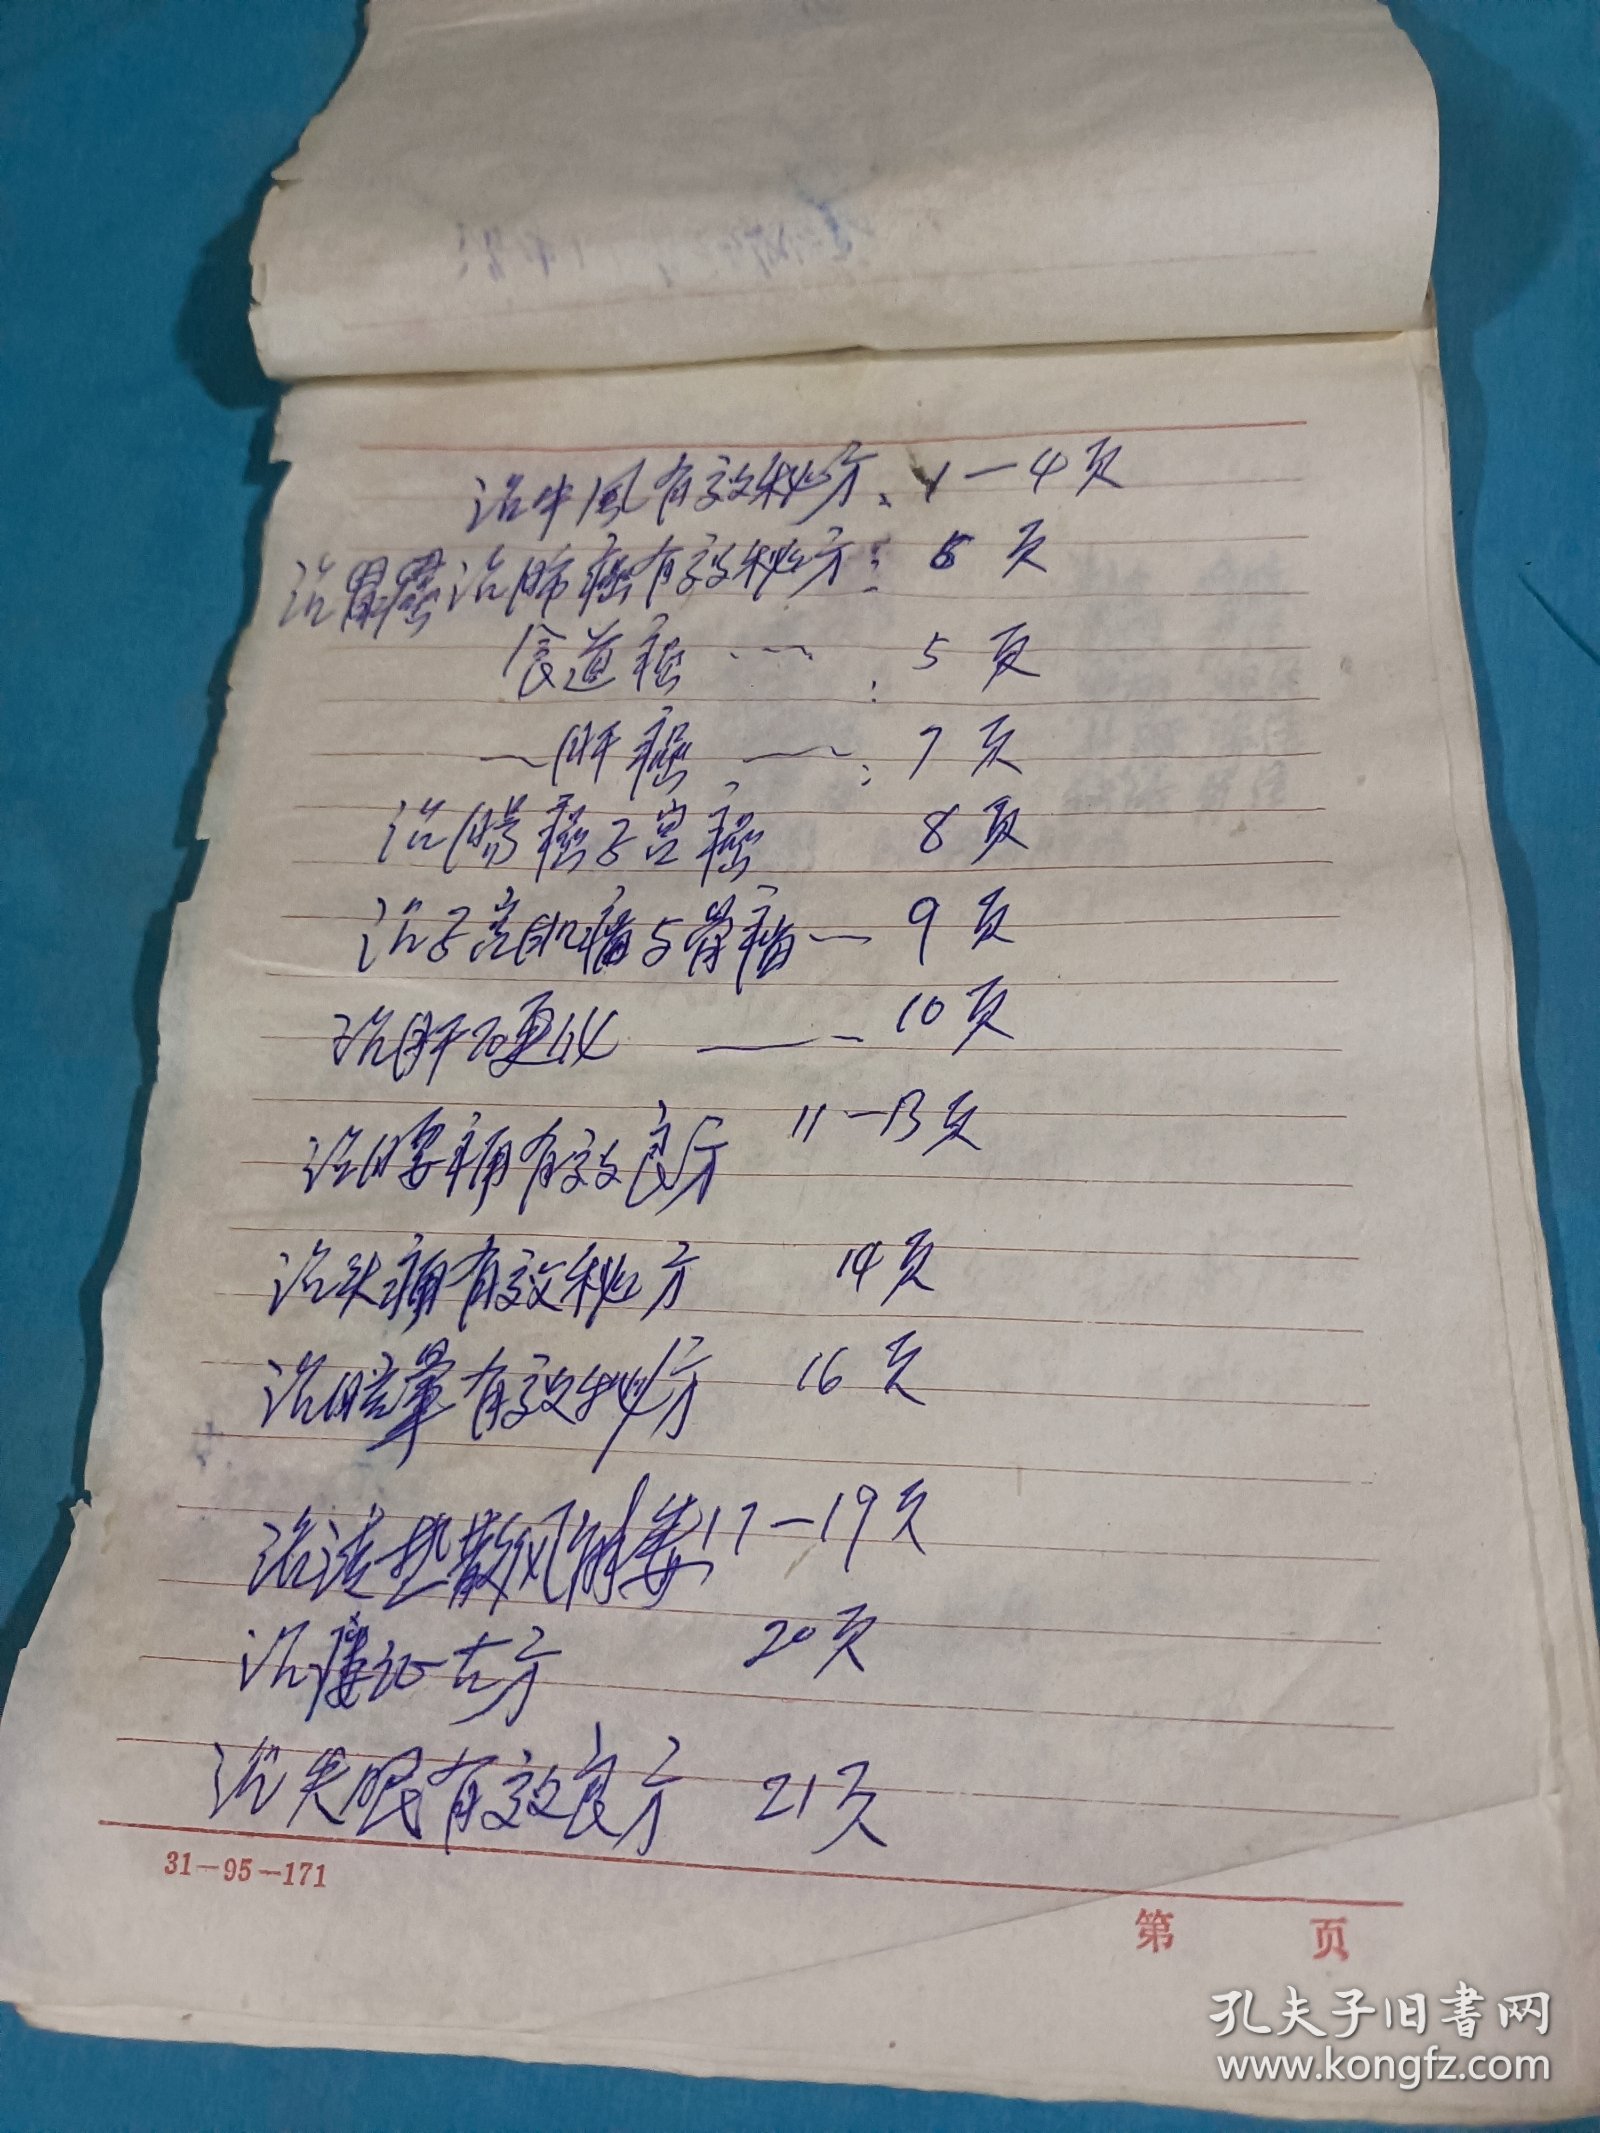 治中風有效秘方、1—4页
治胃癌治肺癌有效秘方: 5页
食道癌 ---- : 5页
—肝癌 ——: 7页
治肠癌子宫癌 8页
治子宫肌瘤与骨瘤— 9页
治肝硬化 ——— 10页
治腰痛有效良方 11—13页
治头痛有效秘方 14页
治眩晕有效秘方 16页
治清热散风解毒17—19页
治痿症古方 20页
治失眠有效良方 21页
31—95—171
第 页
孔夫子旧書网
www.kongfz.com